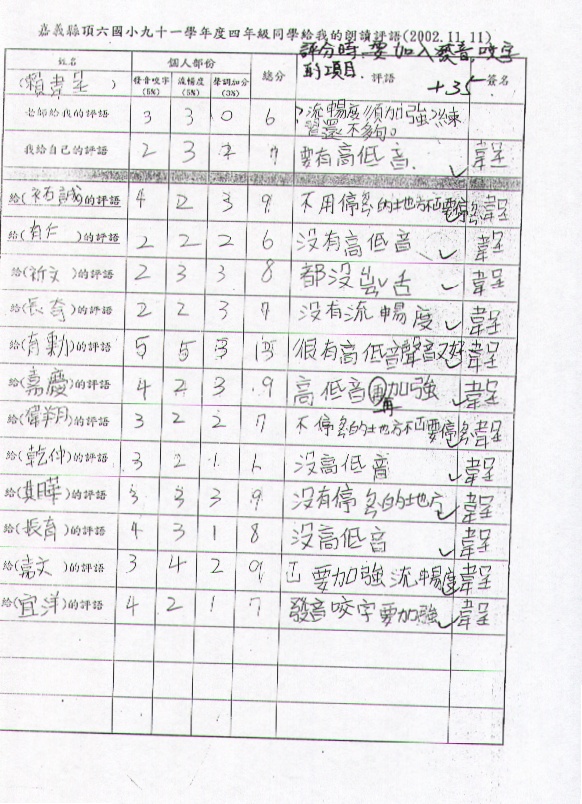 嘉義縣頂六國小九十一學年度四年級同學給我的朗讀評語(2002.11.11)
評分時,要加入發音,咬字
的項目. +35
姓名 個人部份 總分 評語 簽名
(賴韋呈) 發音咬字(5%) 流暢度(5%) 聲調加分(3%)
老師給我的評語 3 3 0 6 流暢度須加強,練
習還不夠。
我給自己的評語 2 3 2 7 要有高低音. 韋呈
給(祐誠)的評語 4 2 3 9 不用停的地方不要停 韋呈
給(有仁)的評語 2 2 2 6 沒有高低音 韋呈
給(新文)的評語 2 3 3 8 都沒 舌 韋呈
給(長奇)的評語 2 2 3 7 沒有流暢度 韋呈
給(育勳)的評語 5 5 3 13 很有高低音聲音又好 韋呈
給(嘉慶)的評語 4 2 3 9 高低音再加強 韋呈
給(偉翔)的評語 3 2 2 7 不停的地方不要停 韋呈
給(乾仲)的評語 3 2 1 6 沒高低音 韋呈
給(琪曄)的評語 3 3 3 9 沒有停的地方 韋呈
給(振育)的評語 4 3 1 8 沒高低音 韋呈
給(嘉文)的評語 3 4 2 9 要加強流暢度 韋呈
給(宜洋)的評語 4 2 1 7 發音咬字要加強 韋呈